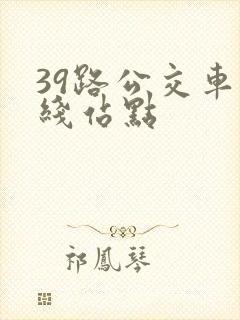 39路公交車
綫佔點
祁鳳琴